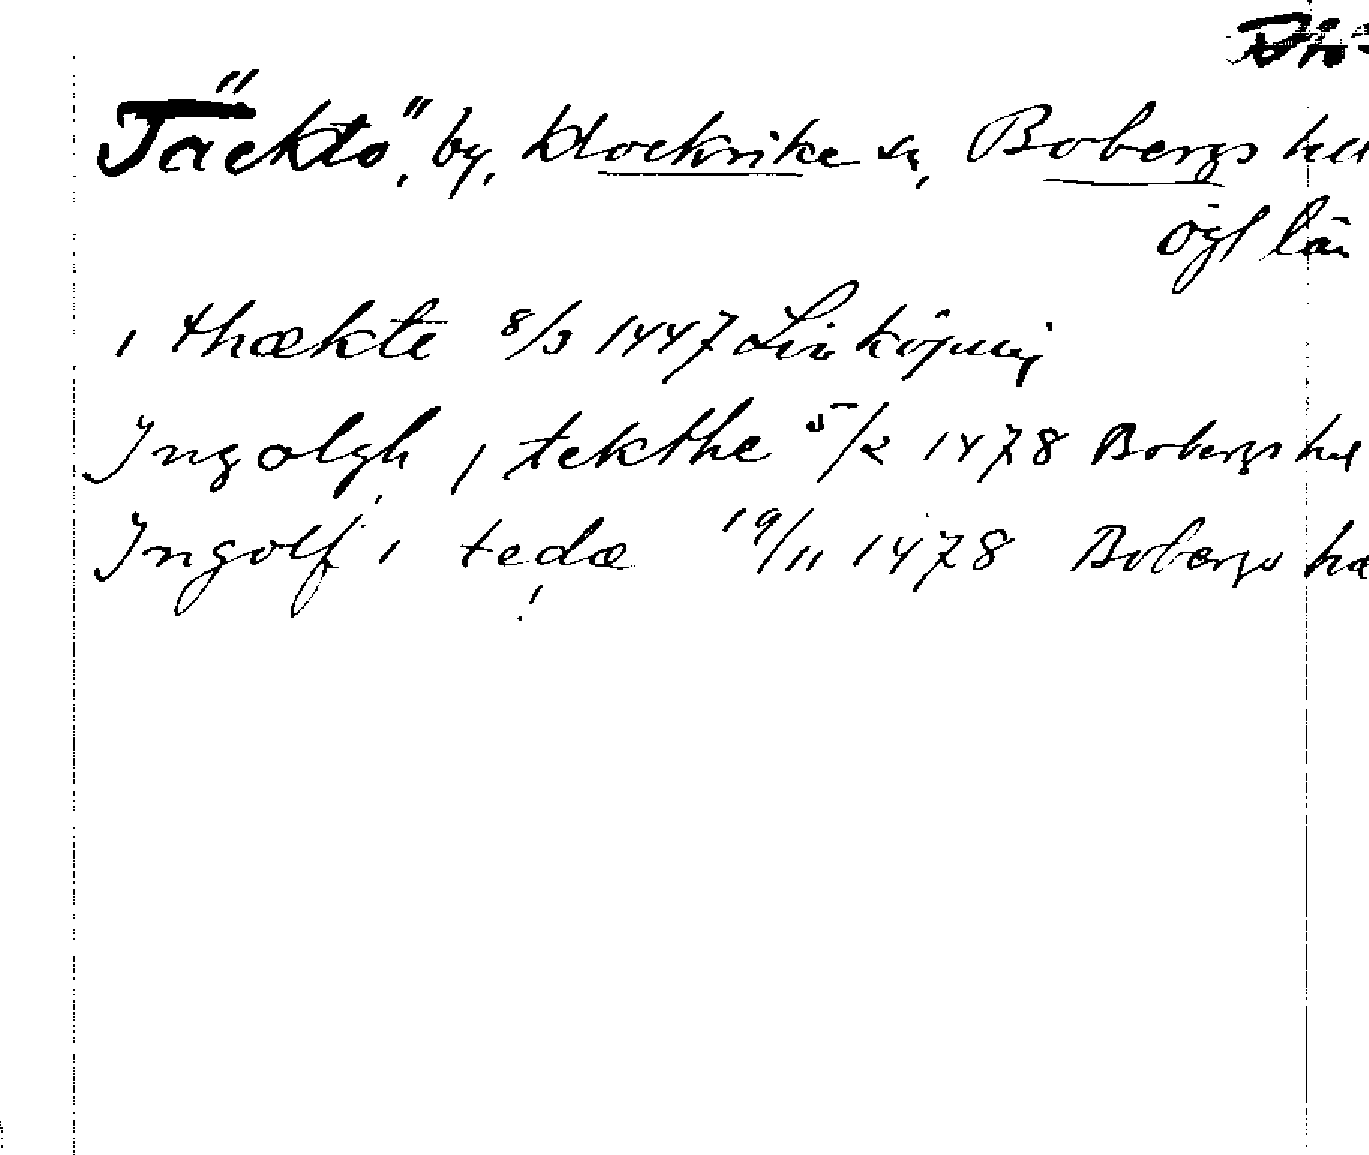 Täcktö, by, Klockrike sn, Bobergs hd
Ögl län
i thækte 8/3 1447 Linköping
Ingolgh i tekthe 5/2 1478 Bobergs hd
Ingolf i tedæ 19/11 1478 Bobergs hd
!